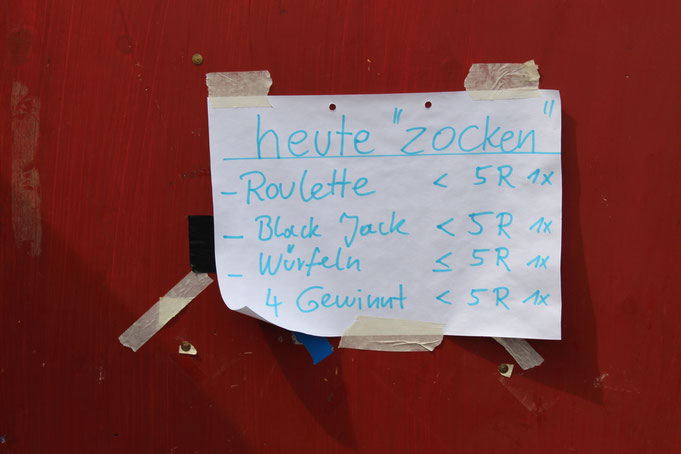 heute "zocken"
- Roulette < 5 R 1x
- Black Jack < 5 R 1x
- Würfeln ≤ 5 R 1x
4 Gewinnt < 5 R 1x